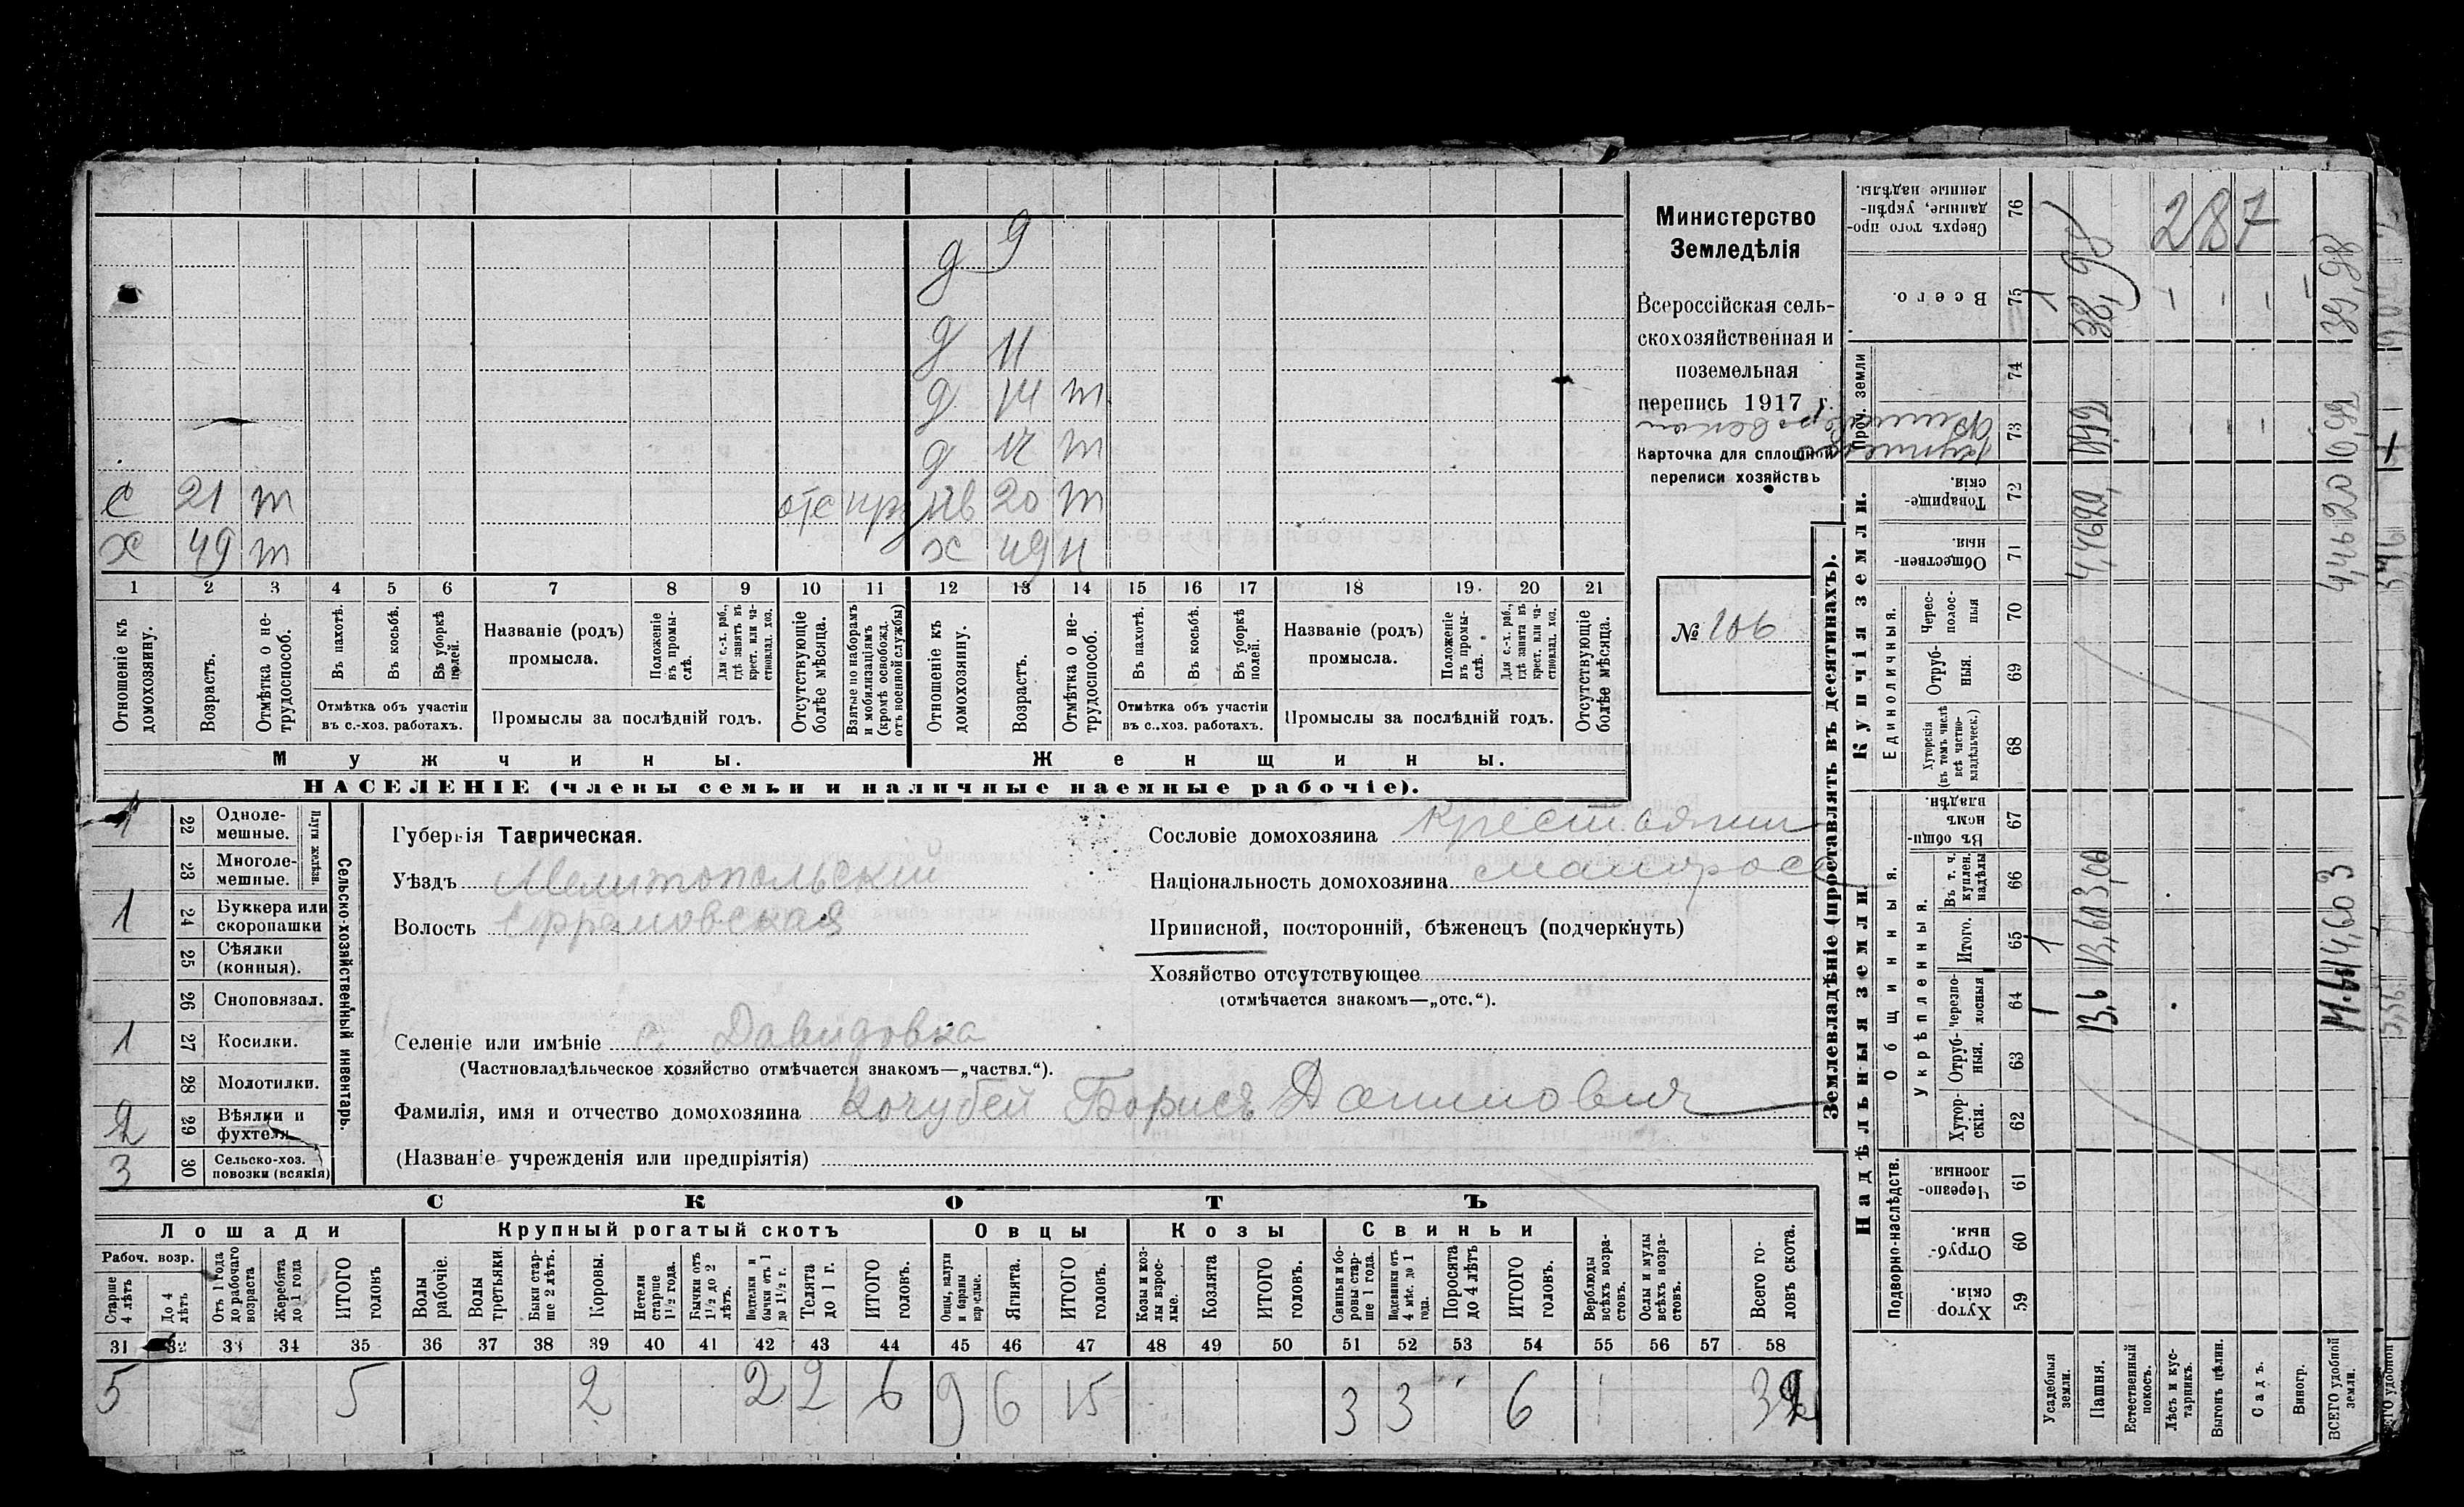 Министерство
Земледѣлія
Всероссійская сель-
скохозяйственная и
поземельная
перепись 1917 г.
Карточка для сплошной
переписи хозяйствъ
№ 106
д 9
д 11
д 14 т
д 12 т
с 21 т отс 20 т
х 49 т х 49 н
1 2 3 4 5 6 7 8 9 10 11 12 13 14 15 16 17 18 19. 20 21
Отношеніе къ домохозяину.
Возрастъ.
Отмѣтка о не-трудоспособ.
Въ пахотѣ.
Въ косьбѣ.
Въ уборкѣ полей.
Отмѣтка объ участіи
въ с.-хоз. работахъ.
Названіе (родъ)
промысла.
Положеніе въ промы-слѣ.
Для с.-х. раб., гдѣ занятъ въ крест. или ча-стновлад. хоз.
Промыслы за послѣдній годъ.
Отсутствующіе болѣе мѣсяца.
Взятые по наборамъ и мобилизаціямъ (кромѣ освобожд. отъ военной службы)
Отношеніе къ домохозяину.
Возрастъ.
Отмѣтка о не-трудоспособ.
Въ пахотѣ.
Въ косьбѣ.
Въ уборкѣ полей.
Отмѣтка объ участіи
въ с.-хоз. работахъ.
Названіе (родъ)
промысла.
Положеніе въ промы-слѣ.
Для с.-х. раб., гдѣ занята въ крест. или ча-стновлад. хоз.
Промыслы за послѣдній годъ.
Отсутствующіе болѣе мѣсяца.
Мужчины. Женщины.
НАСЕЛЕНІЕ (члены семьи и наличные наемные рабочіе).
Сельско-хозяйственный инвентарь.
Плуги желѣзн.
1 22 Одноле-мешные.
23 Многоле-мешные.
1 24 Буккера или скоропашки
25 Сѣялки (конныя).
26 Сноповязал.
1 27 Косилки.
28 Молотилки.
2 29 Вѣялки и фухтеля
3 30 Сельско-хоз. повозки (всякія)
Губернія Таврическая.
Уѣздъ Мелитопольскій
Волость Ефремовская
Сословіе домохозяина Крестьянин
Національность домохозяина малоросс
Приписной, посторонній, бѣженецъ (подчеркнуть)
Хозяйство отсутствующее
(отмѣчается знакомъ—„отс.“).
Селеніе или имѣніе с Давидовка
(Частновладѣльческое хозяйство отмѣчается знакомъ—„частвл.“).
Фамилія, имя и отчество домохозяина Кочубей Борисъ
(Названіе учрежденія или предпріятія)
СКОТЪ
Лошади Крупный рогатый скотъ Овцы Козы Свиньи
Рабоч. возр.
Старше 4 лѣтъ
До 4 лѣтъ
Отъ 1 года до рабочаго возраста
Жеребята до 1 года
ИТОГО головъ
Волы рабочіе.
Волы третьяки.
Быки стар-ше 2 лѣтъ.
Коровы.
Нетели старше 1½ года.
Бычки отъ 1½ до 2 лѣтъ.
Подтелки и бычки отъ 1 до 1½ г.
Телята до 1 г.
ИТОГО головъ.
Овцы, валухи и бараны взрослые.
Ягнята.
ИТОГО головъ.
Козы и коз-лы взрос-лые.
Козлята
ИТОГО головъ.
Свиньи и бо-ровы стар-ше 1 года.
Подсвинки отъ 4 мѣс. до 1 года.
Поросята до 4 лѣтъ
ИТОГО головъ.
Верблюды всѣхъ возра-стовъ.
Ослы и мулы всѣхъ возра-стовъ.
Всего го-ловъ скота.
31 32 33 34 35 36 37 38 39 40 41 42 43 44 45 46 47 48 49 50 51 52 53 54 55 56 57 58
5 5 2 2 2 6 9 6 15 3 3 6 32
Землевладѣніе (проставлять въ десятинахъ).
Надѣльныя земли. Купчія земли. Проч. земли
Подворно-наслѣдств.
Общинныя.
Укрѣпленныя.
Единоличныя.
Хутор-скія. 59
Отруб-ныя. 60
Черезпо-лосныя. 61
Хутор-скія. 62
Отруб-ныя. 63
Черезпо-лосныя 64
Итого. 65
Въ т. ч. куплен. надѣлы 66
Въ общи-номъ владѣн. 67
Хуторскія (въ томъ числѣ всѣ частно-владѣльческ.) 68
Отруб-ныя. 69
Черес-полос-ныя 70
Обществен-ныя. 71
Товарище-скія. 72
73
74
Всего. 75
Сверхъ того про-данные, укрѣп-ленные надѣлы. 76
Усадебныя земли. 1 1 1
Пашня. 13,6 38,98
Естественный покосъ.
Лѣсъ и кус-тарникъ.
Выгонъ цѣлин.
Садъ.
Виногр.
ВСЕГО удобной земли. 39,98
287